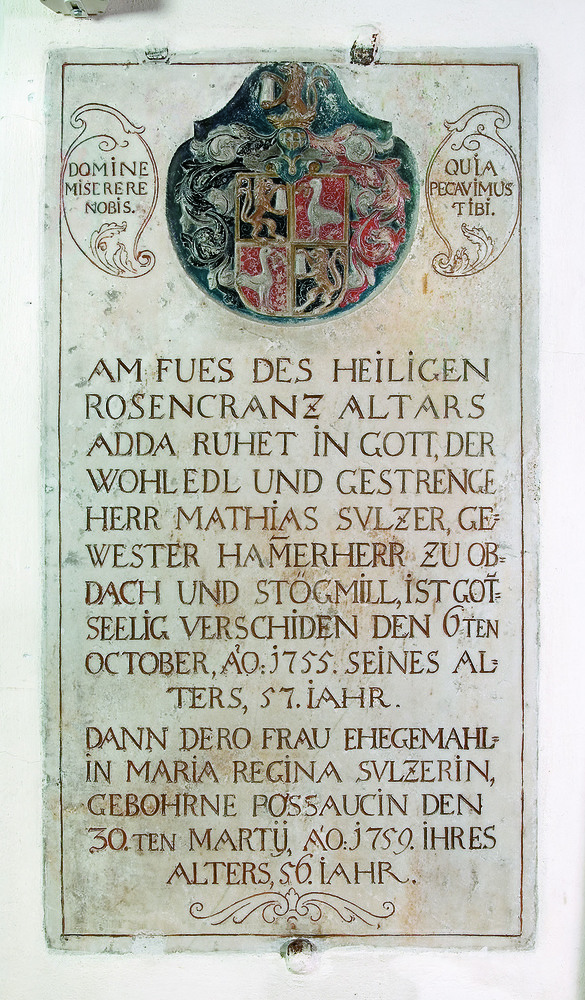 DOMINE
MISERERE
NOBIS.
QUIA
PECAVIMUS
TIBI.
AM FUES DES HEILIGEN
ROSENCRANZ ALTARS
ADDA RUHET IN GOTT, DER
WOHLEDL UND GESTRENGE
HERR MATHIAS SVLZER, GE=
WESTER HAM̄ERHERR ZU OB=
DACH UND STÖGMILL, IST GOT̄=
SEELIG VERSCHIDEN DEN 6TEN
OCTOBER, AO: 1755. SEINES AL=
TERS, 57. IAHR.
DANN DERO FRAU EHEGEMAHL=
IN MARIA REGINA SVLZERIN,
GEBOHRNE POSSAUCIN DEN
30.TEN MARTIJ, AO: 1759. IHRES
ALTERS, 56. IAHR.